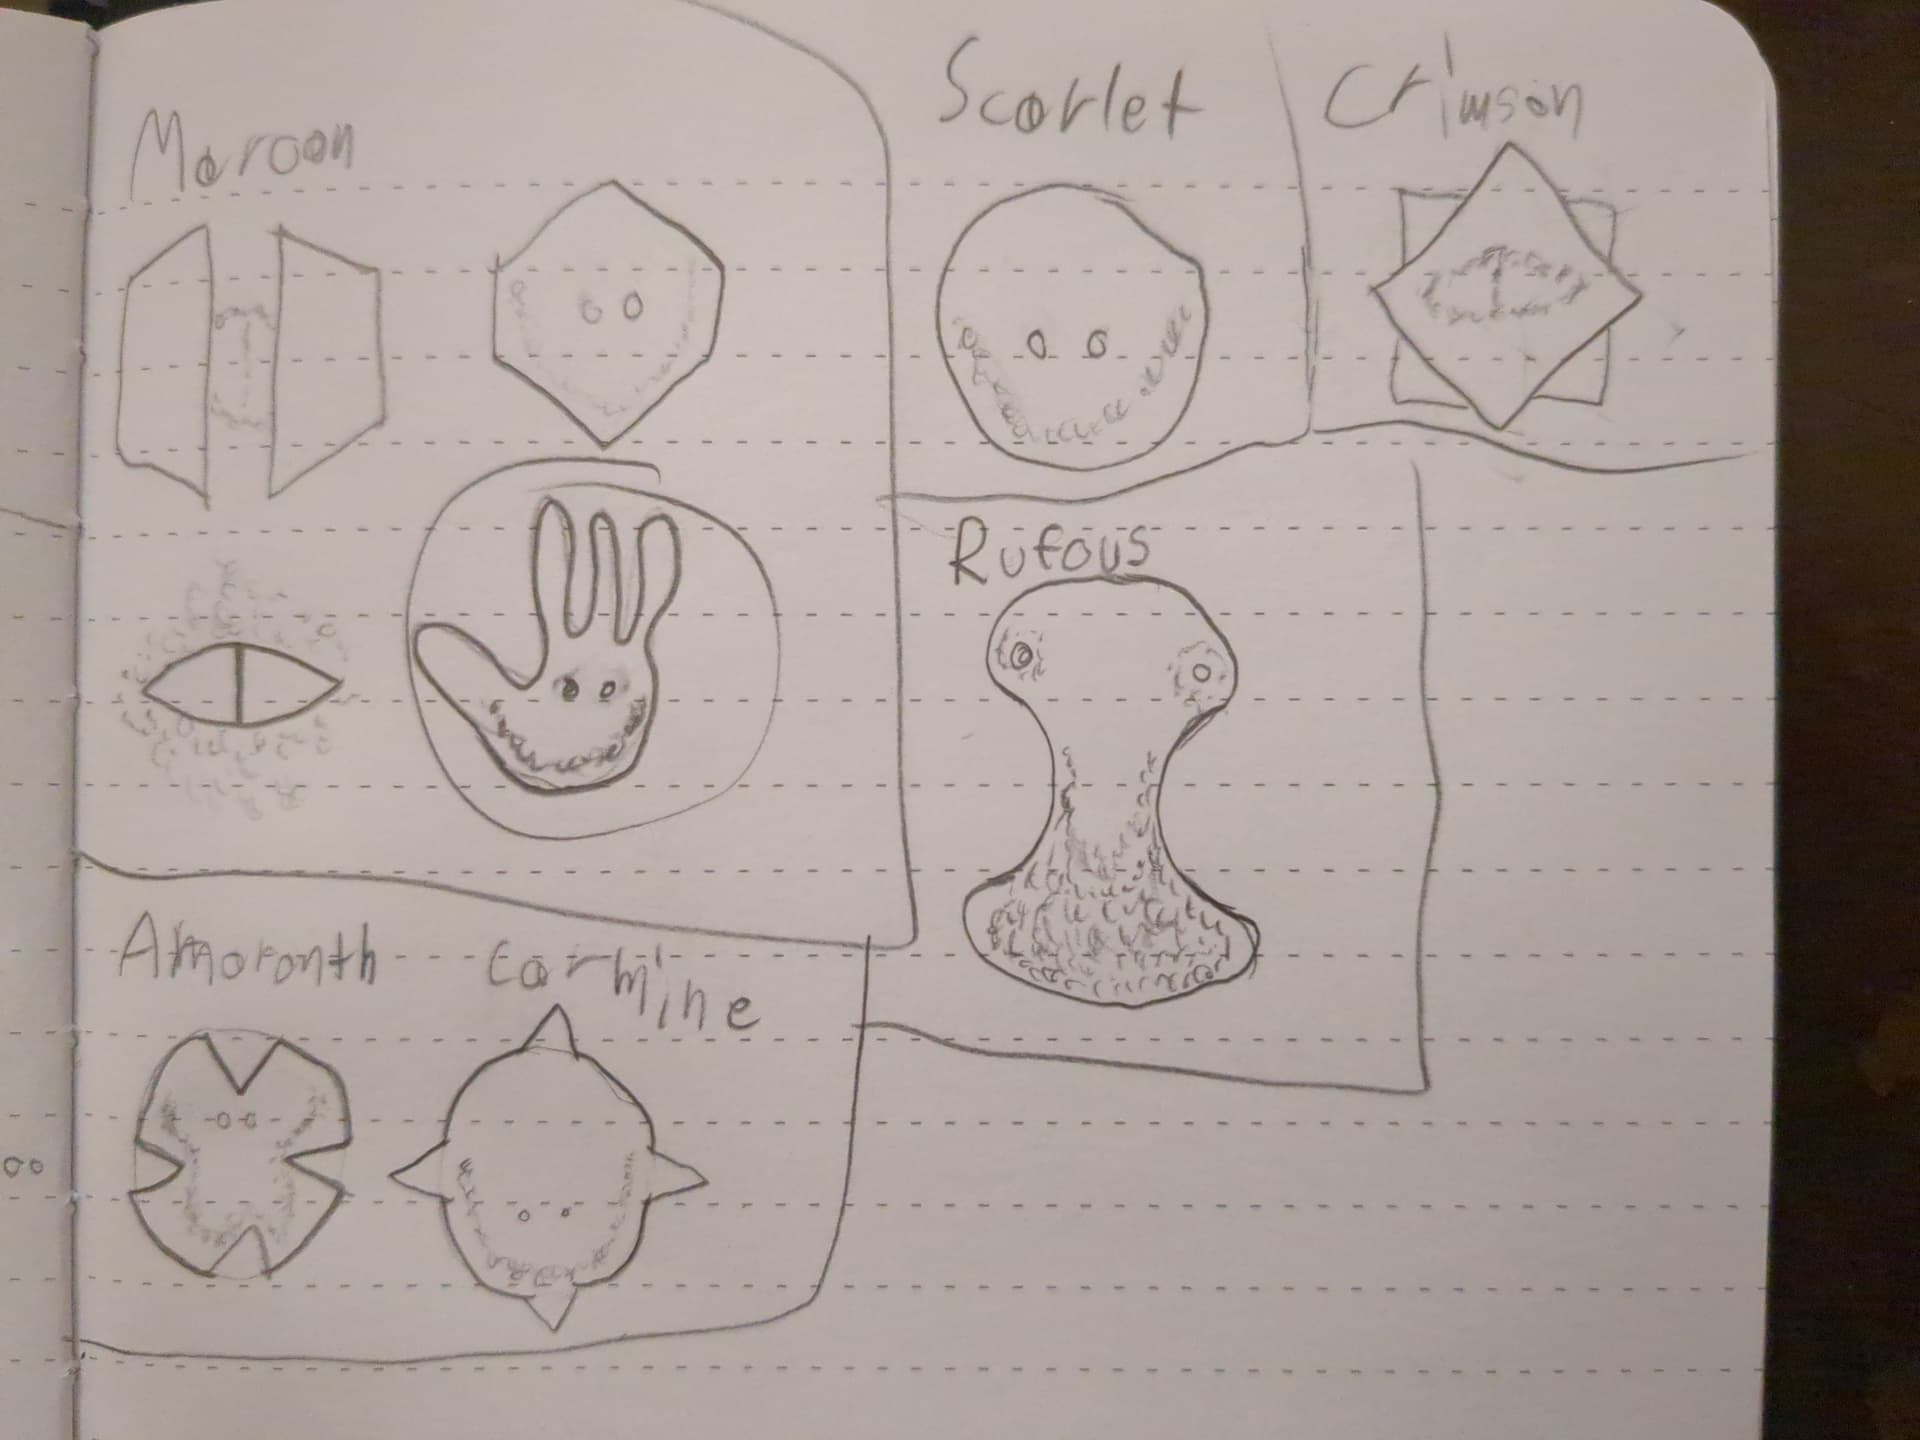 Maroon
Scarlet
Crimson
Rufous
Amaranth
Carmine